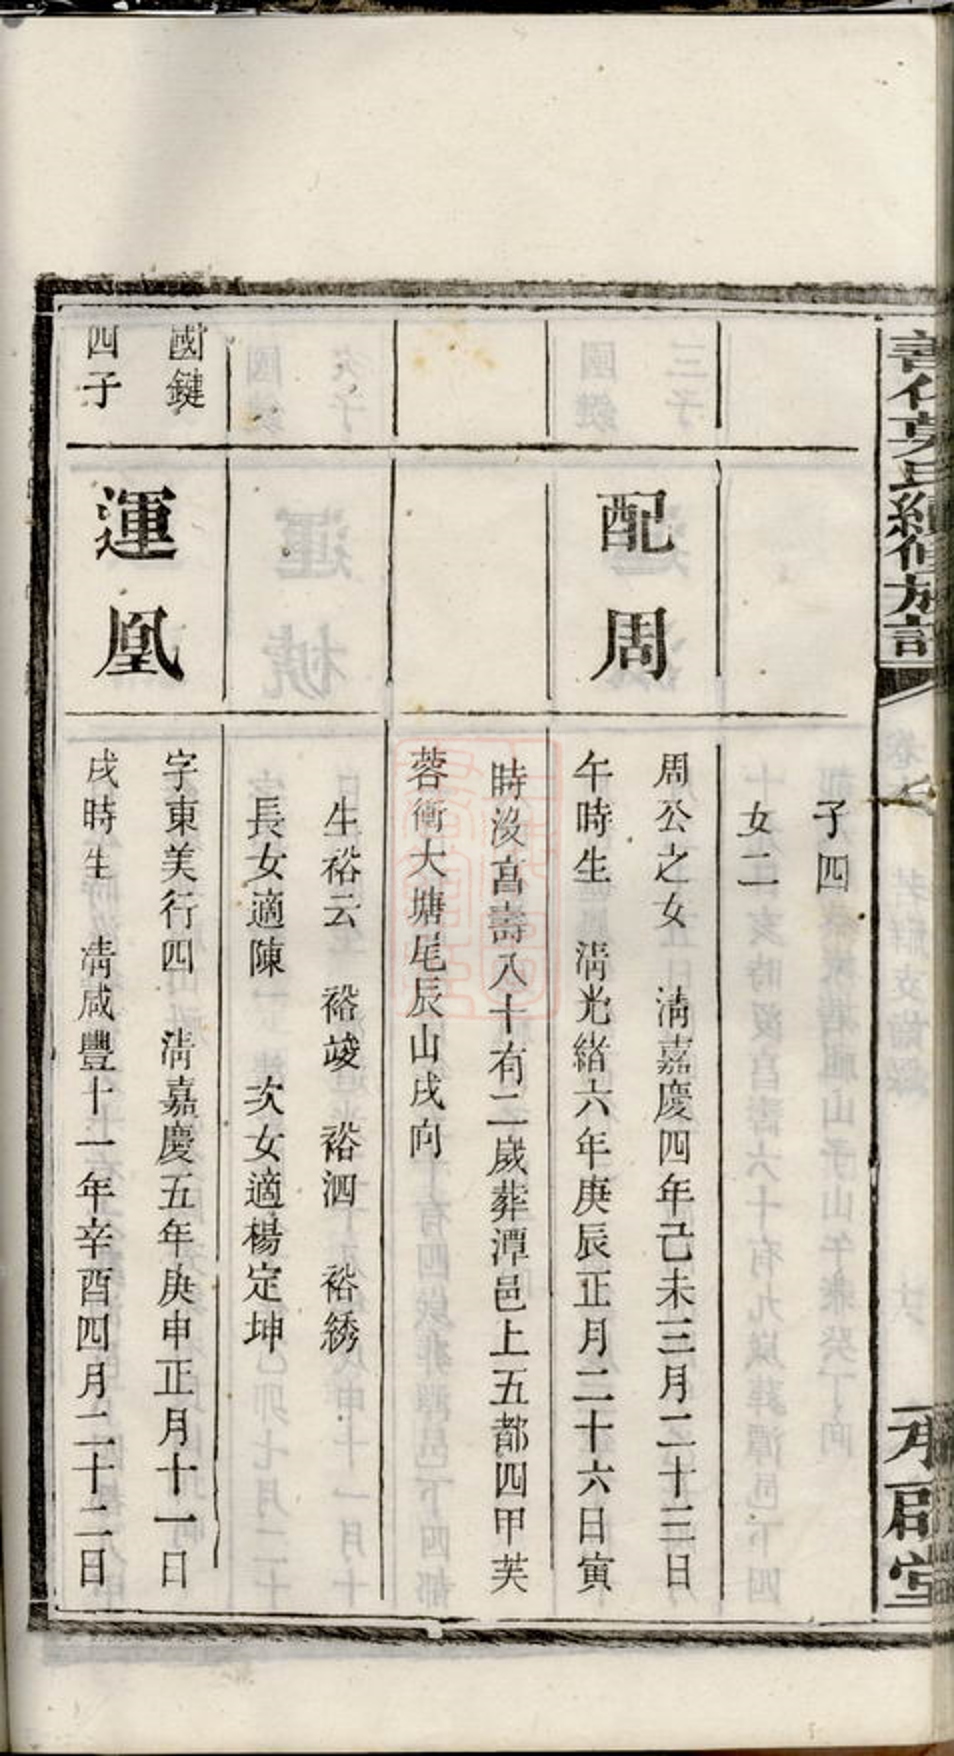 子四
女二
配周
周公之女　清嘉慶四年己未三月二十三日
午時生　清光緒六年庚辰正月二十六日寅
時沒享壽八十有二歲葬潭邑上五都四甲芙
蓉衝大塘尾辰山戌向
生裕云　裕竣　裕泗　裕綉
長女適陳　次女適楊定坤
國鍵
四子
運凰
字東美行四　清嘉慶五年庚申正月十一日
戌時生　清咸豐十一年辛酉四月二十二日
承啟堂